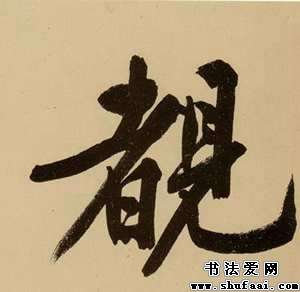 覩
书法爱网
www.shufaai.com